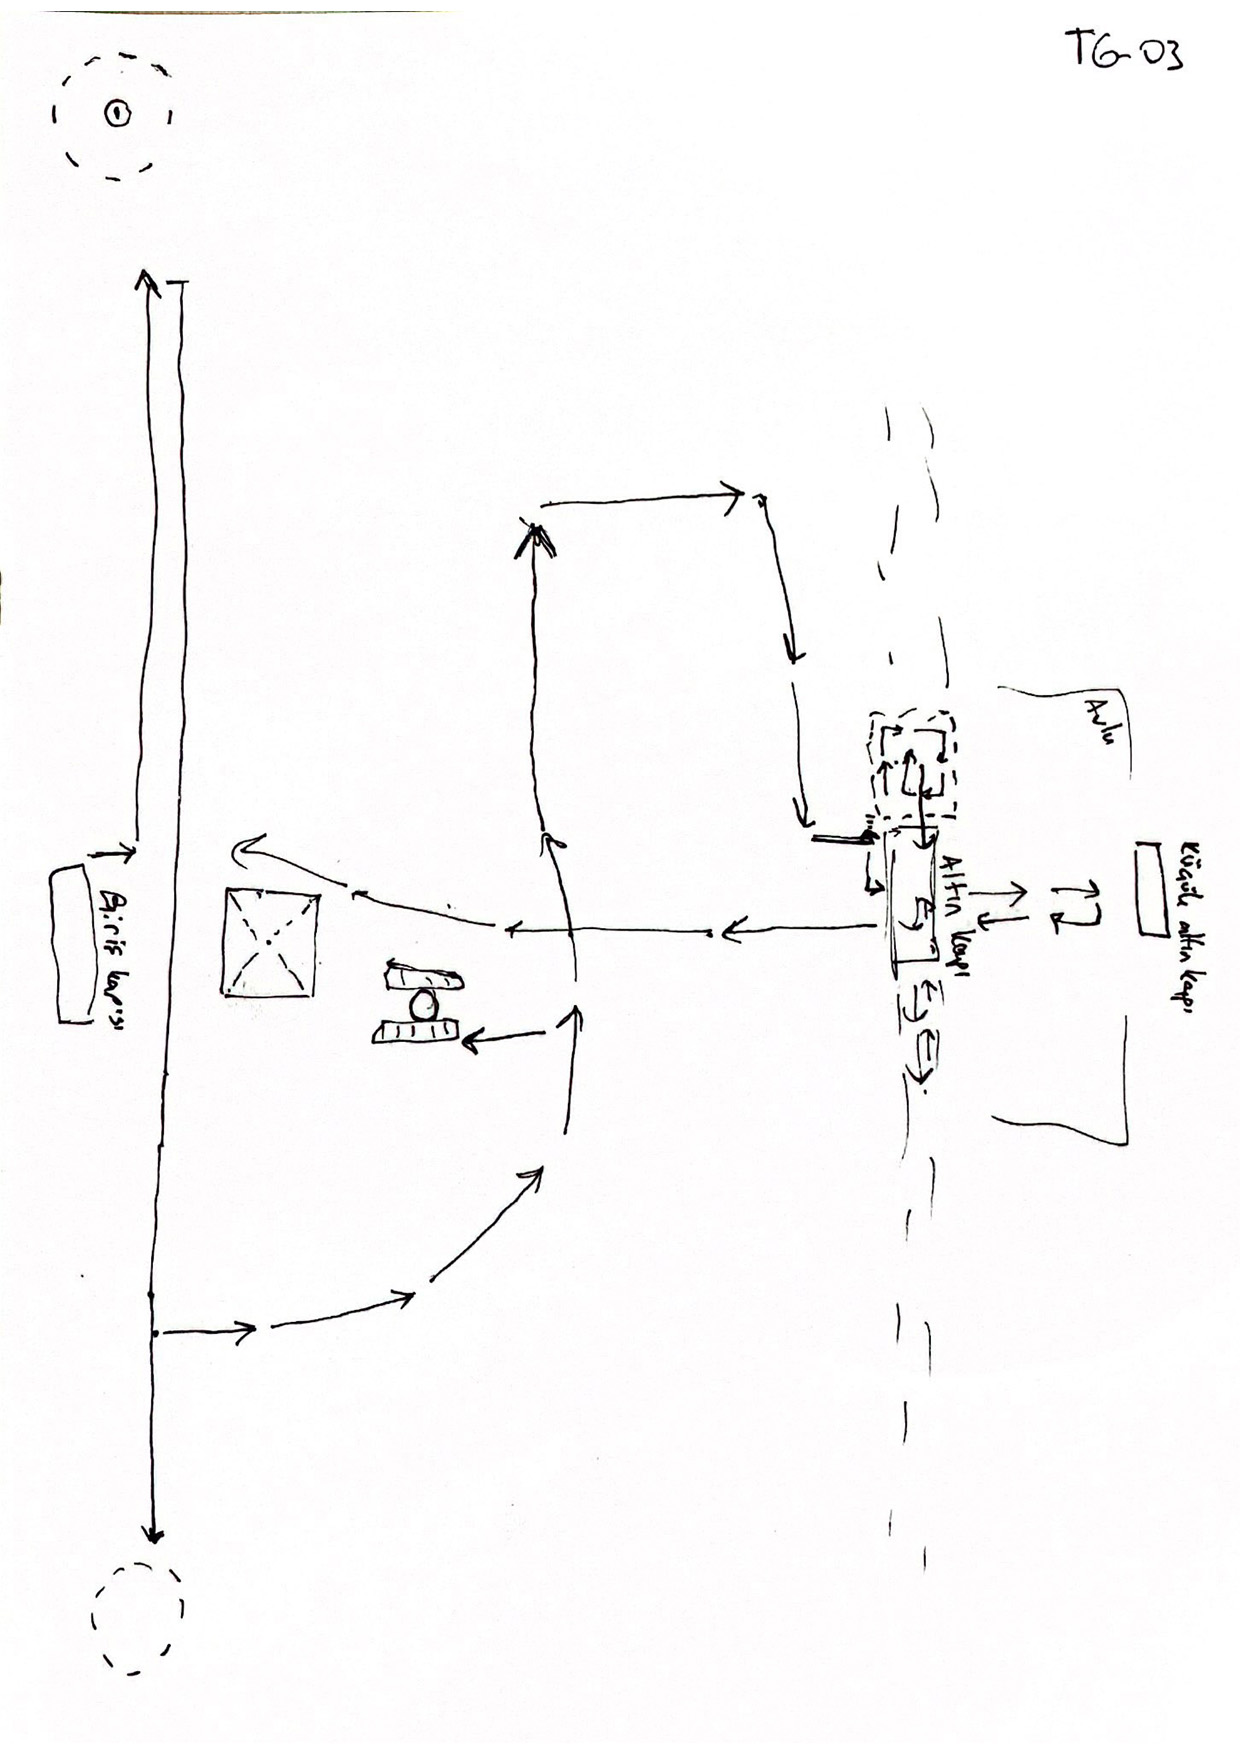 TG-03
Küçük altın kapı
Avlu
Altın kapı
Giriş kapısı